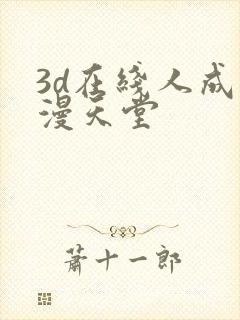 3d在线人成
漫天堂
萧十一郎